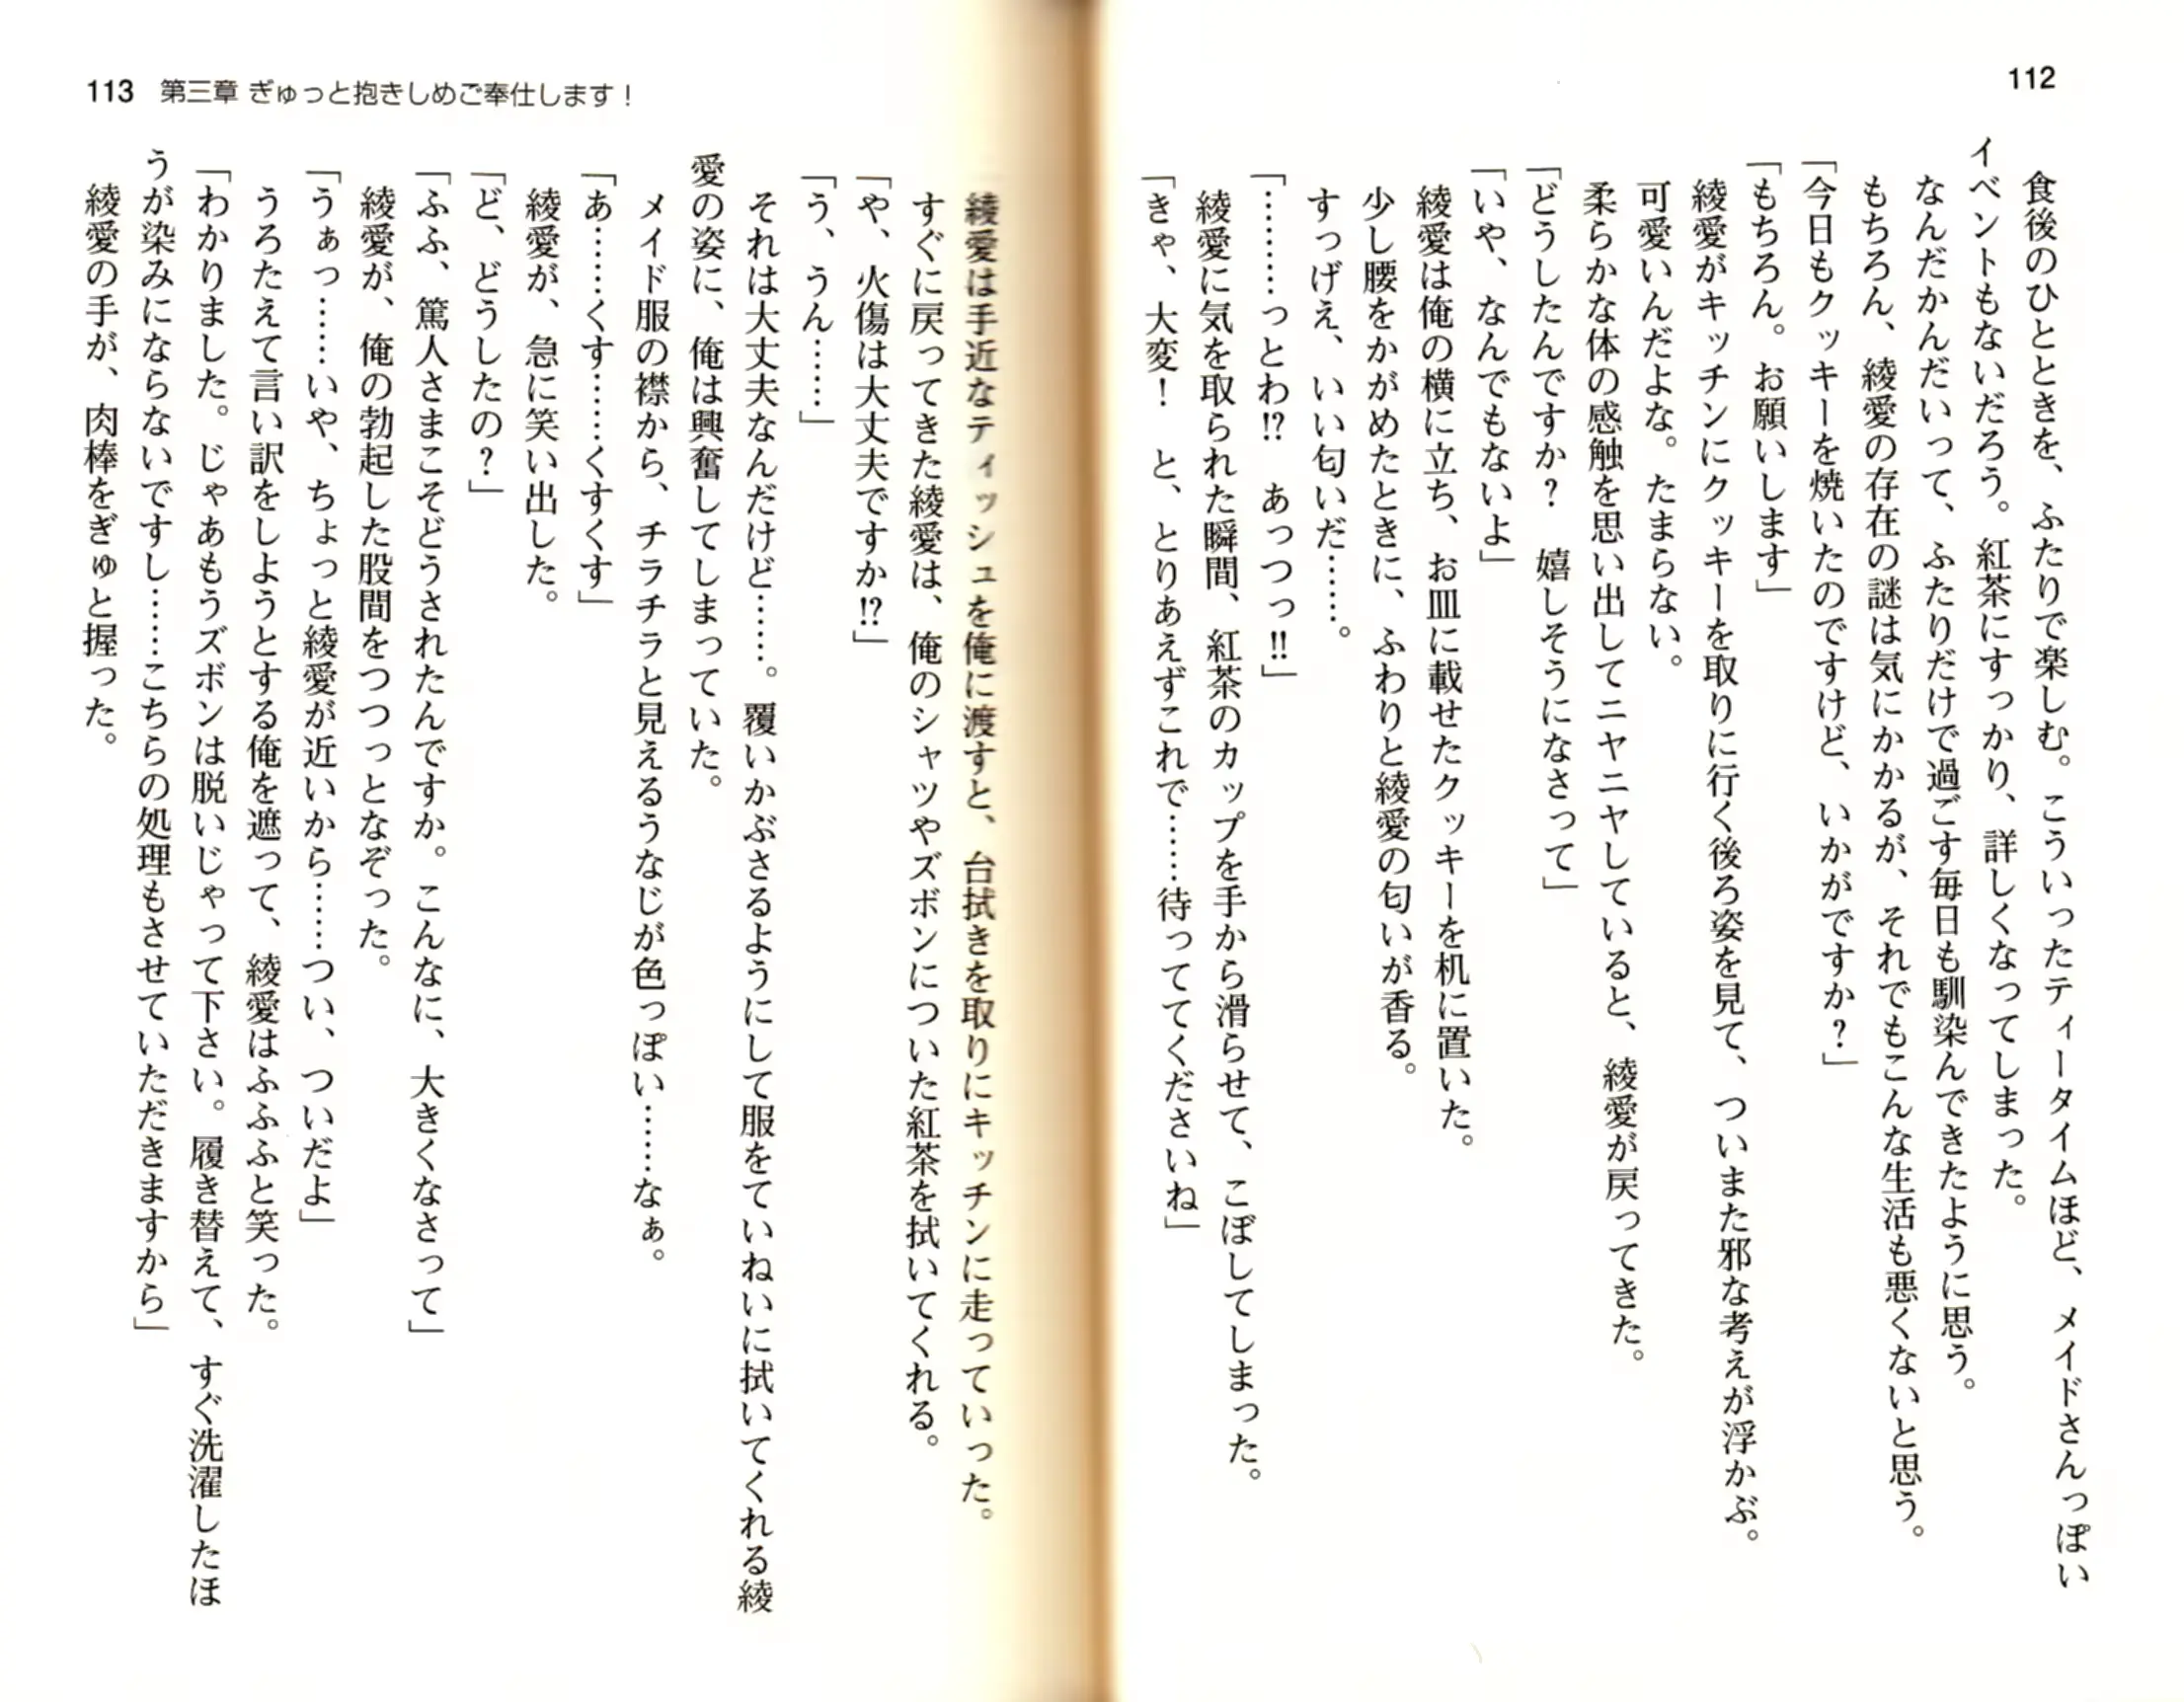 112
食後のひとときを、ふたりで楽しむ。こういったティータイムほど、メイドさんっぽい
イベントもないだろう。紅茶にすっかり、詳しくなってしまった。
なんだかんだいって、ふたりだけで過ごす毎日も馴染んできたように思う。
もちろん、綾愛の存在の謎は気にかかるが、それでもこんな生活も悪くないと思う。
「今日もクッキーを焼いたのですけど、いかがですか？」
「もちろん。お願いします」
綾愛がキッチンにクッキーを取りに行く後ろ姿を見て、ついまた邪な考えが浮かぶ。
可愛いんだよな。たまらない。
柔らかな体の感触を思い出してニヤニヤしていると、綾愛が戻ってきた。
「どうしたんですか？　嬉しそうになさって」
「いや、なんでもないよ」
綾愛は俺の横に立ち、お皿に載せたクッキーを机に置いた。
少し腰をかがめたときに、ふわりと綾愛の匂いが香る。
すっげえ、いい匂いだ……。
「………っとわ!?　あっつっ!!」
綾愛に気を取られた瞬間、紅茶のカップを手から滑らせて、こぼしてしまった。
「きゃ、大変！　と、とりあえずこれで……待っててくださいね」
113 第三章 ぎゅっと抱きしめご奉仕します！
綾愛は手近なティッシュを俺に渡すと、台拭きを取りにキッチンに走っていった。
すぐに戻ってきた綾愛は、俺のシャツやズボンについた紅茶を拭いてくれる。
「や、火傷は大丈夫ですか!?」
「う、うん……」
それは大丈夫なんだけど……。覆いかぶさるようにして服をていねいに拭いてくれる綾
愛の姿に、俺は興奮してしまっていた。
メイド服の襟から、チラチラと見えるうなじが色っぽい……なぁ。
「あ……くす……くすくす」
綾愛が、急に笑い出した。
「ど、どうしたの？」
「ふふ、篤人さまこそどうされたんですか。こんなに、大きくなさって」
綾愛が、俺の勃起した股間をつつっとなぞった。
「うぁっ……いや、ちょっと綾愛が近いから……つい、ついだよ」
うろたえて言い訳をしようとする俺を遮って、綾愛はふふふと笑った。
「わかりました。じゃあもうズボンは脱いじゃって下さい。履き替えて、すぐ洗濯したほ
うが染みにならないですし……こちらの処理もさせていただきますから」
綾愛の手が、肉棒をぎゅと握った。